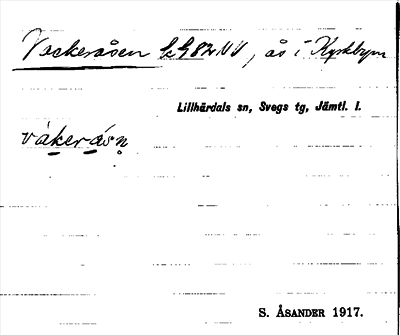 Vackeråsen k 82 NV, ås i Kyrkbyn
Lillhärdals sn, Svegs tg, Jämtl. l.
våkeråsn̥
S. ÅSANDER 1917.